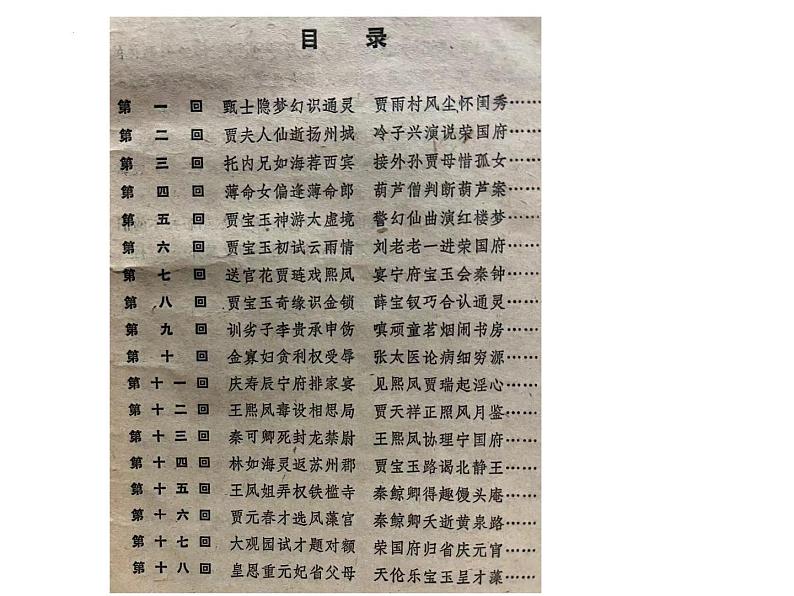 目 录
第一回 甄士隐梦幻识通灵 贾雨村风尘怀闺秀……
第二回 贾夫人仙逝扬州城 冷子兴演说荣国府……
第三回 托内兄如海荐西宾 接外孙贾母惜孤女……
第四回 薄命女偏逢薄命郎 葫芦僧判断葫芦案……
第五回 贾宝玉神游太虚境 警幻仙曲演红楼梦……
第六回 贾宝玉初试云雨情 刘老老一进荣国府……
第七回 送宫花贾琏戏熙凤 宴宁府宝玉会秦钟……
第八回 贾宝玉奇缘识金锁 薛宝钗巧合认通灵……
第九回 训劣子李贵承申饬 嗔顽童茗烟闹书房……
第十回 金寡妇贪利权受辱 张太医论病细穷源……
第十一回 庆寿辰宁府排家宴 见熙凤贾瑞起淫心……
第十二回 王熙凤毒设相思局 贾天祥正照风月鉴……
第十三回 秦可卿死封龙禁尉 王熙凤协理宁国府……
第十四回 林如海灵返苏州郡 贾宝玉路谒北静王……
第十五回 王凤姐弄权铁槛寺 秦鲸卿得趣馒头庵……
第十六回 贾元春才选凤藻宫 秦鲸卿夭逝黄泉路……
第十七回 大观园试才题对额 荣国府归省庆元宵……
第十八回 皇恩重元妃省父母 天伦乐宝玉呈才藻……